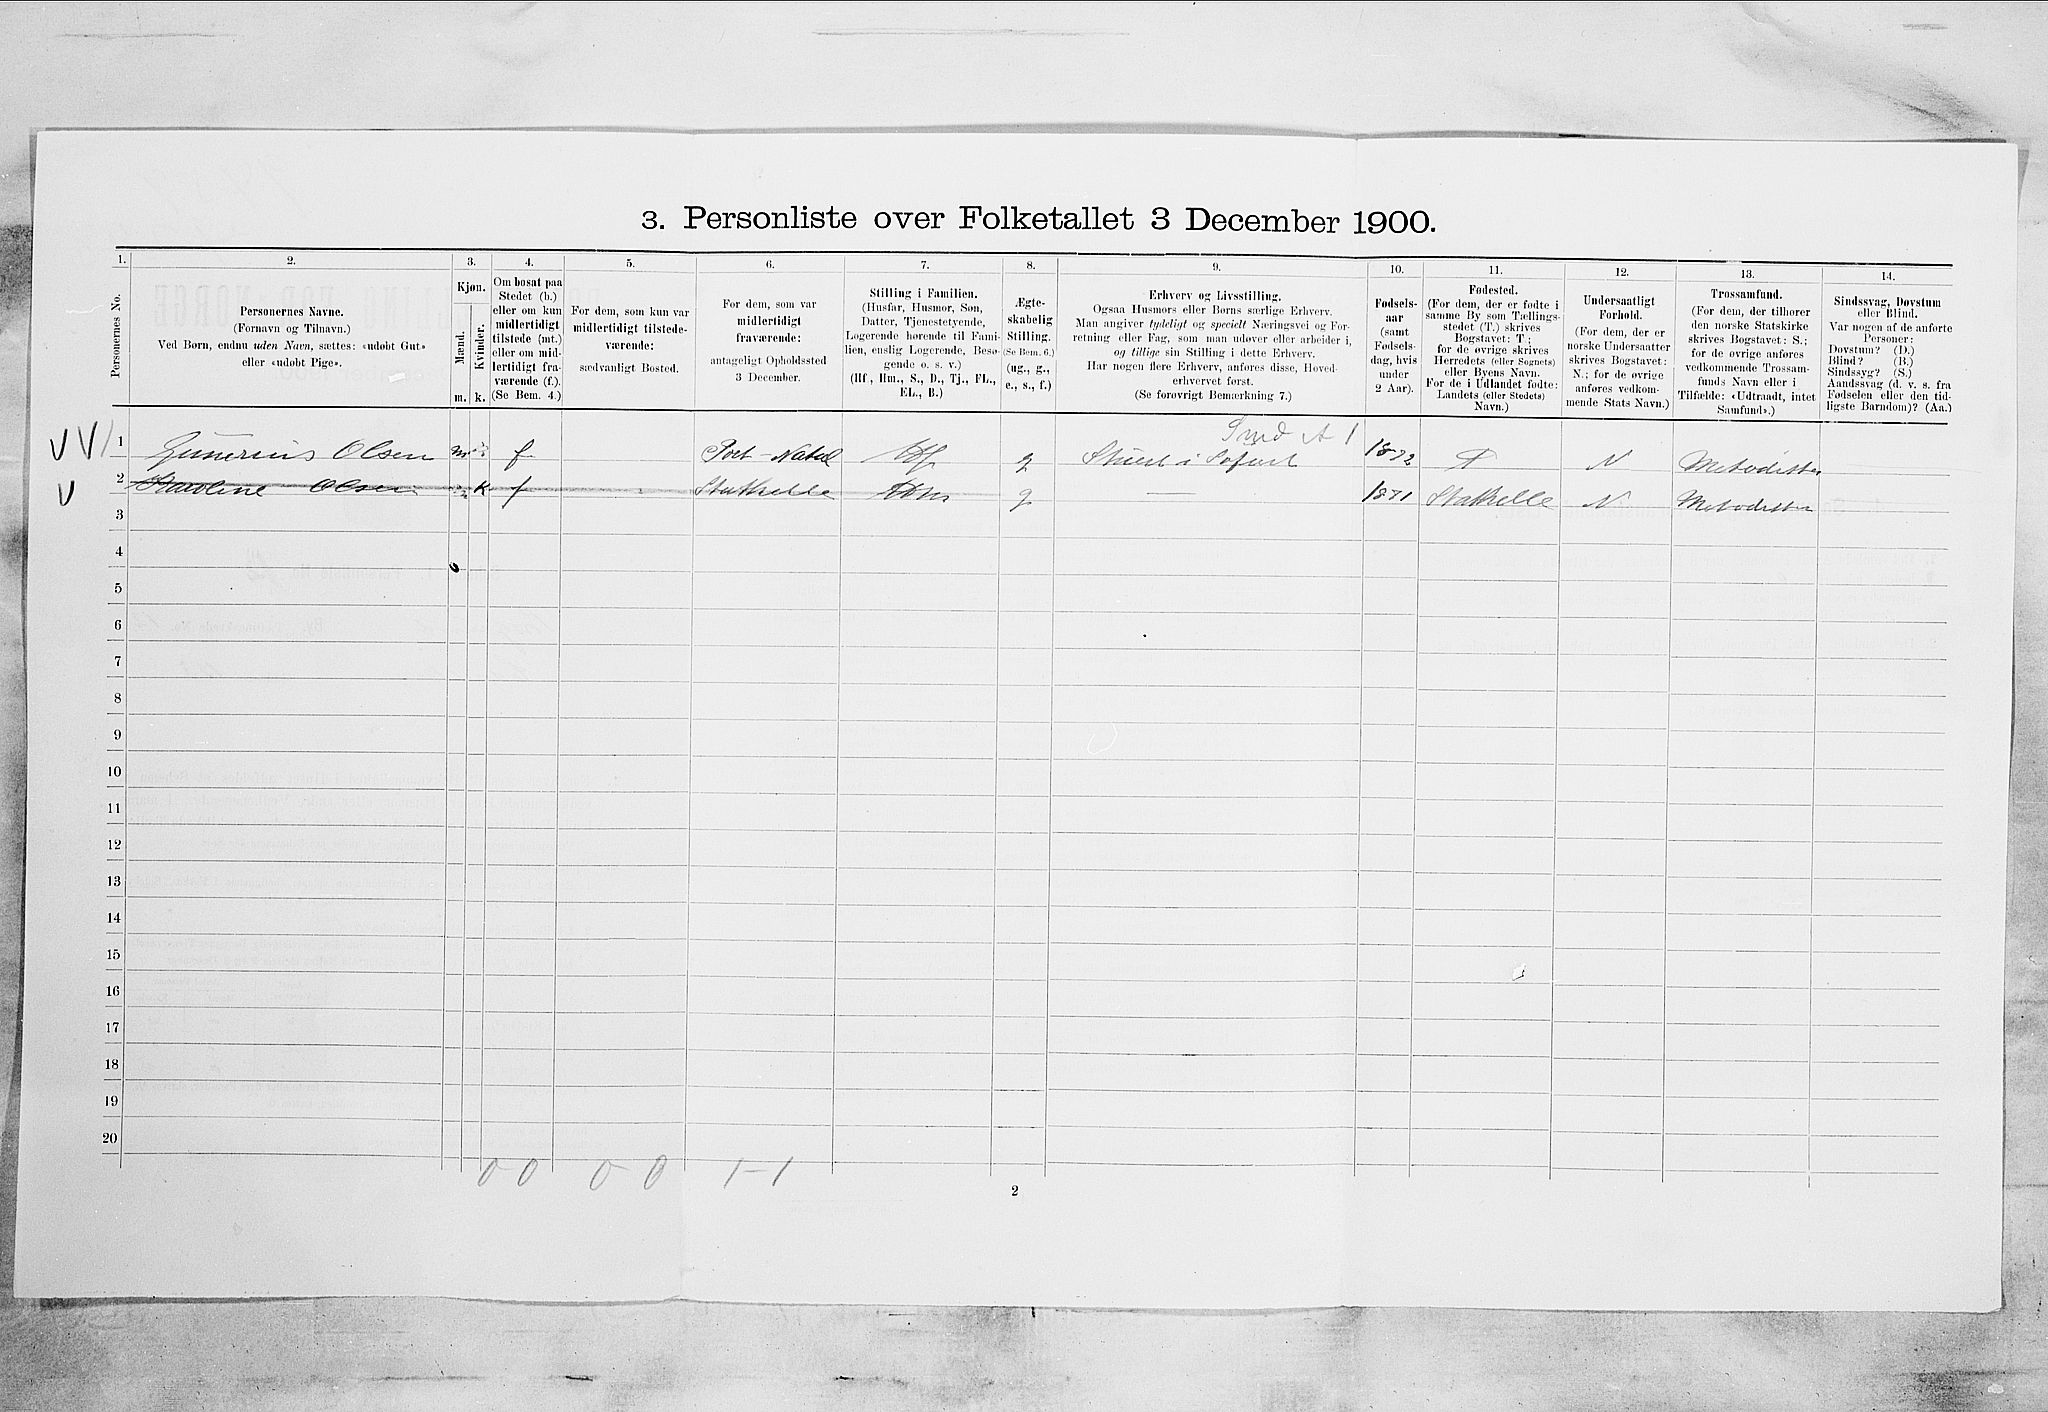 3. Personliste over Folketallet 3 December 1900.
1. 2. 3. 4. 5. 6. 7. 8. 9. 10. 11. 12. 13. 14.
Personernes No.
Personernes Navne.
(Fornavn og Tilnavn.)
Ved Børn, endnu uden Navn, sættes: «udøbt Gut»
eller «udøbt Pige».
Kjøn.
Mænd.
Kvinder.
m. k.
Om bosat paa
Stedet (b.)
eller om kun
midlertidigt
tilstede (mt.)
eller om mid-
lertidigt fra-
værende (f.).
(Se Bem. 4.)
For dem, som kun var
midlertidigt tilstede-
værende:
sædvanligt Bosted.
For dem, som var
midlertidigt
fraværende:
antageligt Opholdssted
3 December.
Stilling i Familien.
(Husfar, Husmor, Søn,
Datter, Tjenestetyende,
Logerende hørende til Fami-
lien, enslig Logerende, Besø-
gende o. s. v.)
(Hf., Hm., S., D., Tj., FL.,
EL., B.)
Ægte-
skabelig
Stilling.
(Se Bem. 6.)
(ug., g.,
e., s., f.)
Erhverv og Livsstilling.
Ogsaa Husmors eller Børns særlige Erhverv.
Man angiver tydeligt og specielt Næringsvei og For-
retning eller Fag, som man udøver eller arbeider i,
og tillige sin Stilling i dette Erhverv.
Har nogen flere Erhverv, anføres disse, Hoved-
erhvervet først.
(Se forøvrigt Bemærkning 7.)
Fødsels-
aar
(samt
Fødsels-
dag, hvis
under
2 Aar).
Fødested.
(For dem, der er fødte i
samme By som Tællings-
stedet (T.) skrives
Bogstavet: T;
for de øvrige skrives
Herredets (eller Sognets)
eller Byens Navn.
For de i Udlandet fødte:
Landets (eller Stedets)
Navn.)
Undersaatligt
Forhold.
(For dem, der er
norske Undersaatter
skrives Bogstavet:
N.; for de øvrige
anføres vedkom-
mende Stats Navn.)
Trossamfund.
(For dem, der tilhører
den norske Statskirke
skrives Bogstavet: S.;
for de øvrige anføres
vedkommende Trossam-
funds Navn eller i
Tilfælde: «Udtraadt, intet
Samfund».)
Sindssvag, Døvstum
eller Blind.
Var nogen af de anførte
Personer:
Døvstum? (D.)
Blind? (B.)
Sindssyg? (S.)
Aandssvag (d. v. s. fra
Fødselen eller den tid-
ligste Barndom)? (Aa.)
1 Gunerius Olsen m f Port-Natal Hf g 1872 T N Metodister
2 Karoline Olsen k f Stathelle Hm g — 1871 Stathelle N Metodister
3
4
5
6
7
8
9
10
11
12
13
14
15
16
17
18
19
20
0 0 0-0 1-1
2